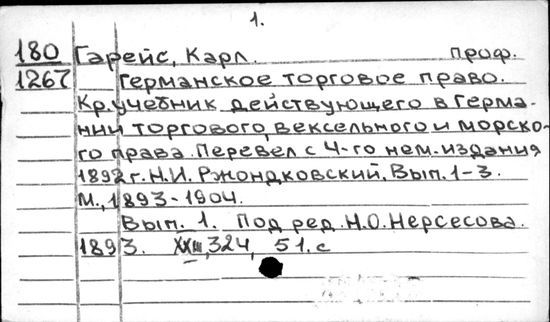 1.
180 Гарейс, Карл. проф.
1267 Германское торговое право.
Кр. учебник действующего в Герма-
нии торгового, вексельного и морско-
го права. Перевел с 4-го нем. издания
1892 г. Н.И. Ржондковский. Вып. 1-3.
М., 1893-1904.
Вып. 1. Под ред. Н.О. Нерсесова.
1893. XXIII, 324, 51. с